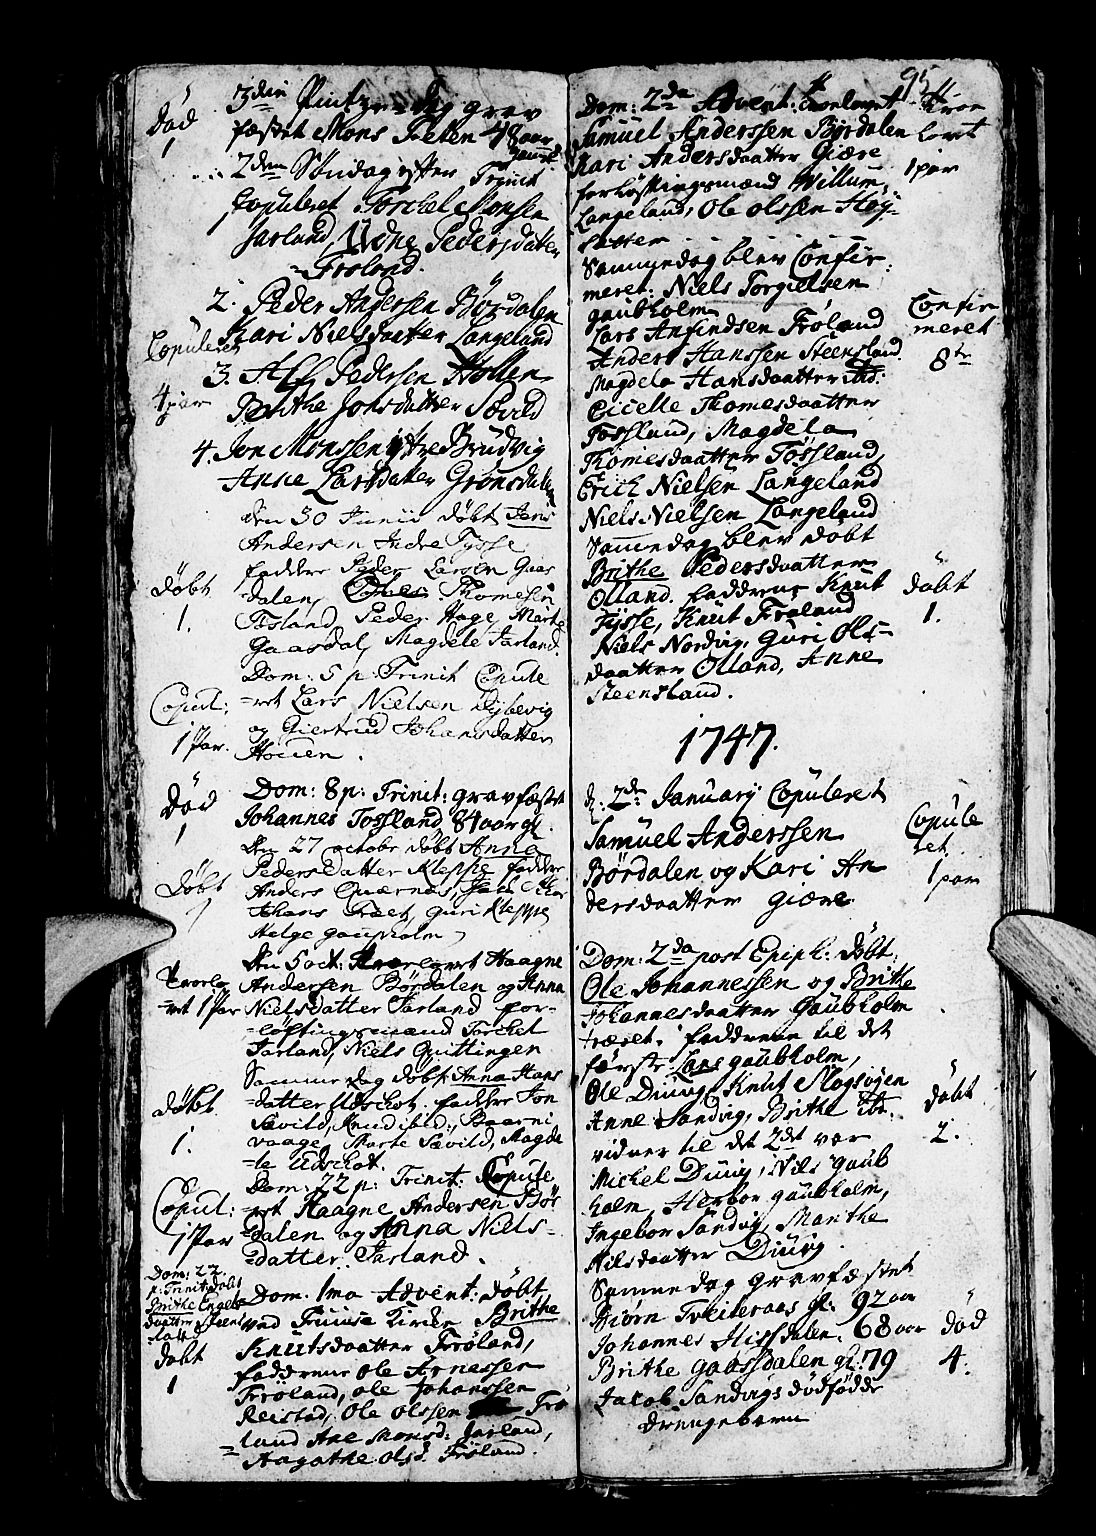 Död
1
3die Pintze Dag grav
fæstet Mons 48 aar
2den Söndag efter Trinit
Copuleret 1 Torchel Monsen
Jarland, Pedersdatter
Froland.
2. Peder Andersen Börsdalen
Kari Nielsdatter Langeland
Copuleret
4 par
3. Pedersen Hollen
Brithe Johsdatter
4. Jon Monsen ytre Brudvig
Anne Larsdatter Grönsdalen
Döbt
1.
den 30 Junii döbt Jens
Andersen Indre Tysse
faddere Peder Larsen Gaas
dalen, Thomesen
Tosland, Peder Hage, Marte
Gaasdal, Magdele Jarland.
Copul:
1 Par.
Dom: 5 p: Trinit Copule
=ret Lars Nielsen Dybevig
og Giertrud Johansdatter
Houen.
Död
1
Dom: 8 p: Trinit: gravfæstet
Johannes Tossland 84 aar gl.
Döbt
1
Den 27 octobr döbt Anna
Pedersdatter Kleppe faddere
Anders Quærnæs,
Johans Guri Kleppe
Helge gaupholm
Trorlo
=vet 1 Par
Den 5 oct: Trorlovet Haagne
Andersen Börsdalen og Anna
Nielsdatter Jarland for-
=löftingsmænd Torchel
Jarland, Niels Quittingen
Döbt.
1.
Samme dag döbt Anna Hans
=datter Udschot. faddere Jon
Sævild, Knud ibid:, Baarni
vaage, Marte Sævild, Magde
=le Udschot.
Copul:
1 Par
Dom: 22 p: Trinit: Copule
=ret Haagne Andersen Bör
=dalen og Anna Niels-
=datter Jarland.
Dom: 22.
p: Trinit: döbt
Brithe Engels
daatter
döbt
1
Dom. 1ma Advent: döbt
ved Kirche Brithe
Knutsdaatter Fröland,
faddrene Ole Arnessen
Fröland, Ole Johanssen
Reistad, Ole Olssen Frö
=land Ane Monsd: Jarland,
Aagathe Olsd. Fröland.
95
Dom: 2da Advent: trorlovet
Samuel Anderssen Börsdalen
Kari Andersdaatter Giære
forlöftingsmænd Willum
Langeland, Ole Olssen Höy-
sætter
Tror
lovet
1 par
Sammedag blev Confir-
meret: Niels Torgielsen
gaubholm
Lars Anfindsen Fröland
Anders Hanssen Steensland.
Magdela Hansdaatter ibd:
Cicelle Thomesdaatter
Tossland, Magdela
Thomesdaatter Tössland,
Erich Nielsen Langeland
Niels Nielsen Langeland
Confir
meret
8te
Samedag blev döbt
Brithe Pedersdaatter
Olland. Faddrene Knut
Tysse, Knut Fröland
Niels Nordvig, Guri Ols-
daatter Olland, Anne
Steensland.
döbt
1.
1747.
d: 2de Januarij Copuleret
Samuel Anderssen
Börsdalen og Kari An
dersdaatter Giære
Copule
ret
1 par
Dom: 2da post Epiph: döbt:
Ole Johannessen og Brithe
Johannesdaatter Gaubholm
træet. faddrene til det
förste Lars gaubholm,
Ole Diuug, Knut Mogsöyen
Anne Sandvig, Brithe ibd.
vidner til det 2det var
Michel Diuug, Nils gaub
holm, Herbor gaubholm,
Ingebor Sandvig, Marithe
Nilsdaatter Diuug.
döbt
2.
Sammedag gravfæstet
Biörn Tveiteraas gl: 92 aar
Johannes Hissdalen. 68 aar
Brithe Gaassdalen gl: 79
Jacob Sandvigs dödfödde
drengebarn
död
4.